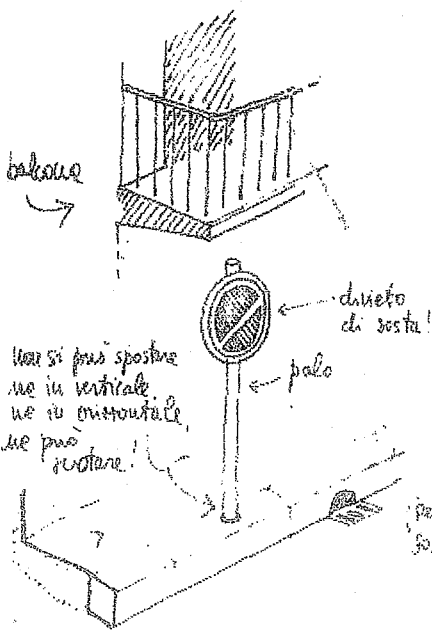 balcone
divieto
di sosta!
palo
non si può spostare
ne in verticale,
ne in orizzontale,
ne può
ruotare!